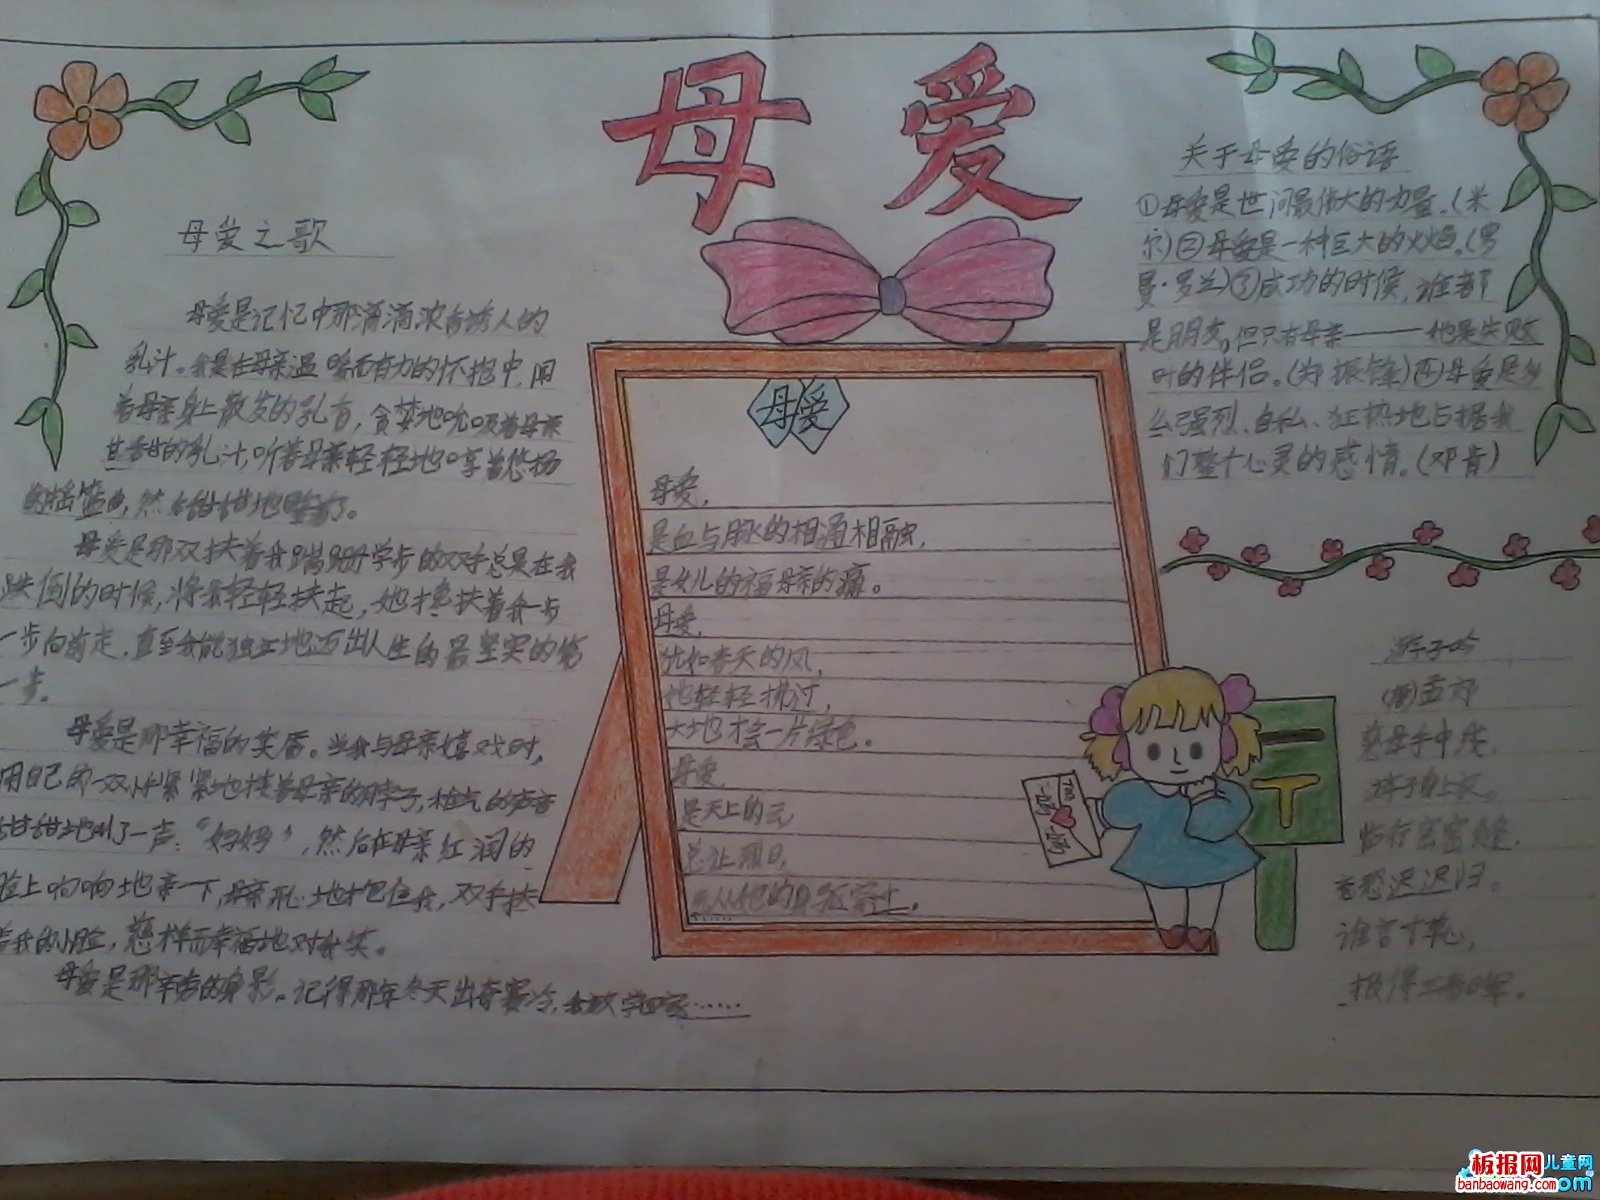 母爱
母爱之歌
母爱是记忆中那滴滴浓香诱人的
乳汁。我是在母亲温暖而有力的怀抱中,闻
着母亲身上散发的乳香,贪婪地吮吸着母亲
甘甜的乳汁,听着母亲轻轻地哼着悠扬
的摇篮曲,然后甜甜地睡着了。
母爱是那双扶着我蹒跚学步的双手总是在我
跌倒的时候,将我轻轻扶起,她搀扶着我一步
一步向前走,直至我能独立地迈出人生的最坚实的第
一步。
母爱是那幸福的笑唇。当我与母亲嬉戏时,
用自己的一双小手紧紧地搂着母亲的脖子,稚气的声音
甜甜地叫了一声:“妈妈”,然后在母亲红润的
脸上响响地亲一下,母亲开心地抱住我,双手扶
着我的小脸,慈祥而幸福地对我笑。
母爱是那辛劳的身影。记得那年冬天出奇寒冷,我放学回家……
母爱
母爱,
是血与脉的相通相融,
是女儿的福母亲的痛。
母爱,
犹如春天的风,
她轻轻拂过,
大地才会一片绿色。
母爱,
是天上的云
总让烈日,
先从她的身躯穿过。
关于母爱的俗语
①母爱是世间最伟大的力量。(米
尔)②母爱是一种巨大的火焰。(罗
曼·罗兰)③成功的时候,谁都
是朋友。但只有母亲——她是失败
时的伴侣。(郑振铎)④母爱是多
么强烈、自私、狂热地占据我
们整个心灵的感情。(邓肯)
游子吟
(唐)孟郊
慈母手中线,
游子身上衣。
临行密密缝,
意恐迟迟归。
谁言寸草心,
报得三春晖。
板报网儿童网
banbaowang.com